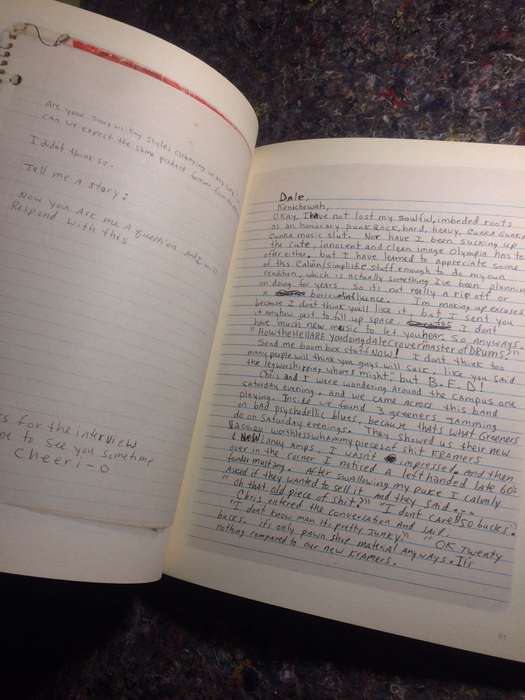 Are your song writing styles changing
can we expect the same product
I didnt think so.
Tell me a story:
Now you ask me a question and I will
Respond with this
for the interview
to see you sometime
Cheeri-O
Dale,
OKAY, I have not lost my soulful, imbeded roots
as an honorary punk Rock, hard, heavy,
music slut. Nor have I been sucking up
the cute, innocent and clean image Olympia has to
offer either, but I have learned to appreciate some
of this Calvin/simplistic stuff enough to do my own
rendition, which is actually something I've been planning
on doing for years. So it's not really a rip off or
a influence. I'm making up excuses
because I dont think you'll like it, but I sent you
it anyhow just to fill up space. I don't
have much new music to let you hear. So Anyways
"HowtheHellAREyoudoingdaleCrovermasterofDRUMS?"
Send me boom box stuff NOW! I don't think too
many people will think you guys will suck, like you said
the legworshipping whores might," but B.F.D!
Chris and I were wandering around the campus one
saturday evening, and we came across this band
playing. Inside we found 3 greeners Jamming
on bad psychedellic blues, because that's what Greeners
do on saturday evenings. They showed us their new
worthlesswhammy pieces of shit KRAMERS
& NEW amps, I wasn't impressed, and then
over in the corner I noticed a left handed late 60s
fender mustang. After swallowing my puke I calmly
Asked if they wanted to sell it and they said...
"Oh that old piece of shit?" "I dont care? 50 bucks."
Chris entered the conversation and said.
"I dont know man it's pretty Junky." "OK Twenty
bucks. it's only pawn shop material anyways. It's
nothing compared to our new KRAMERS.